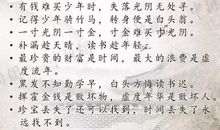 · 有钱难买少年时，失落光阴无处寻。
· 记得少年骑竹马，转身便是白头翁。
· 一寸光阴一寸金，寸金难买寸光阴。
· 补漏趁天晴，读书趁年轻。
· 最珍贵的财富是时间，最大的浪费是虚
度流年。
· 黑发不知勤学早，白头方悔读书迟。
· 挥霍金钱是败坏物，虚度年华是败坏人。
· 珍宝丢失了还可以找到，时间丢失了永
远找不到。